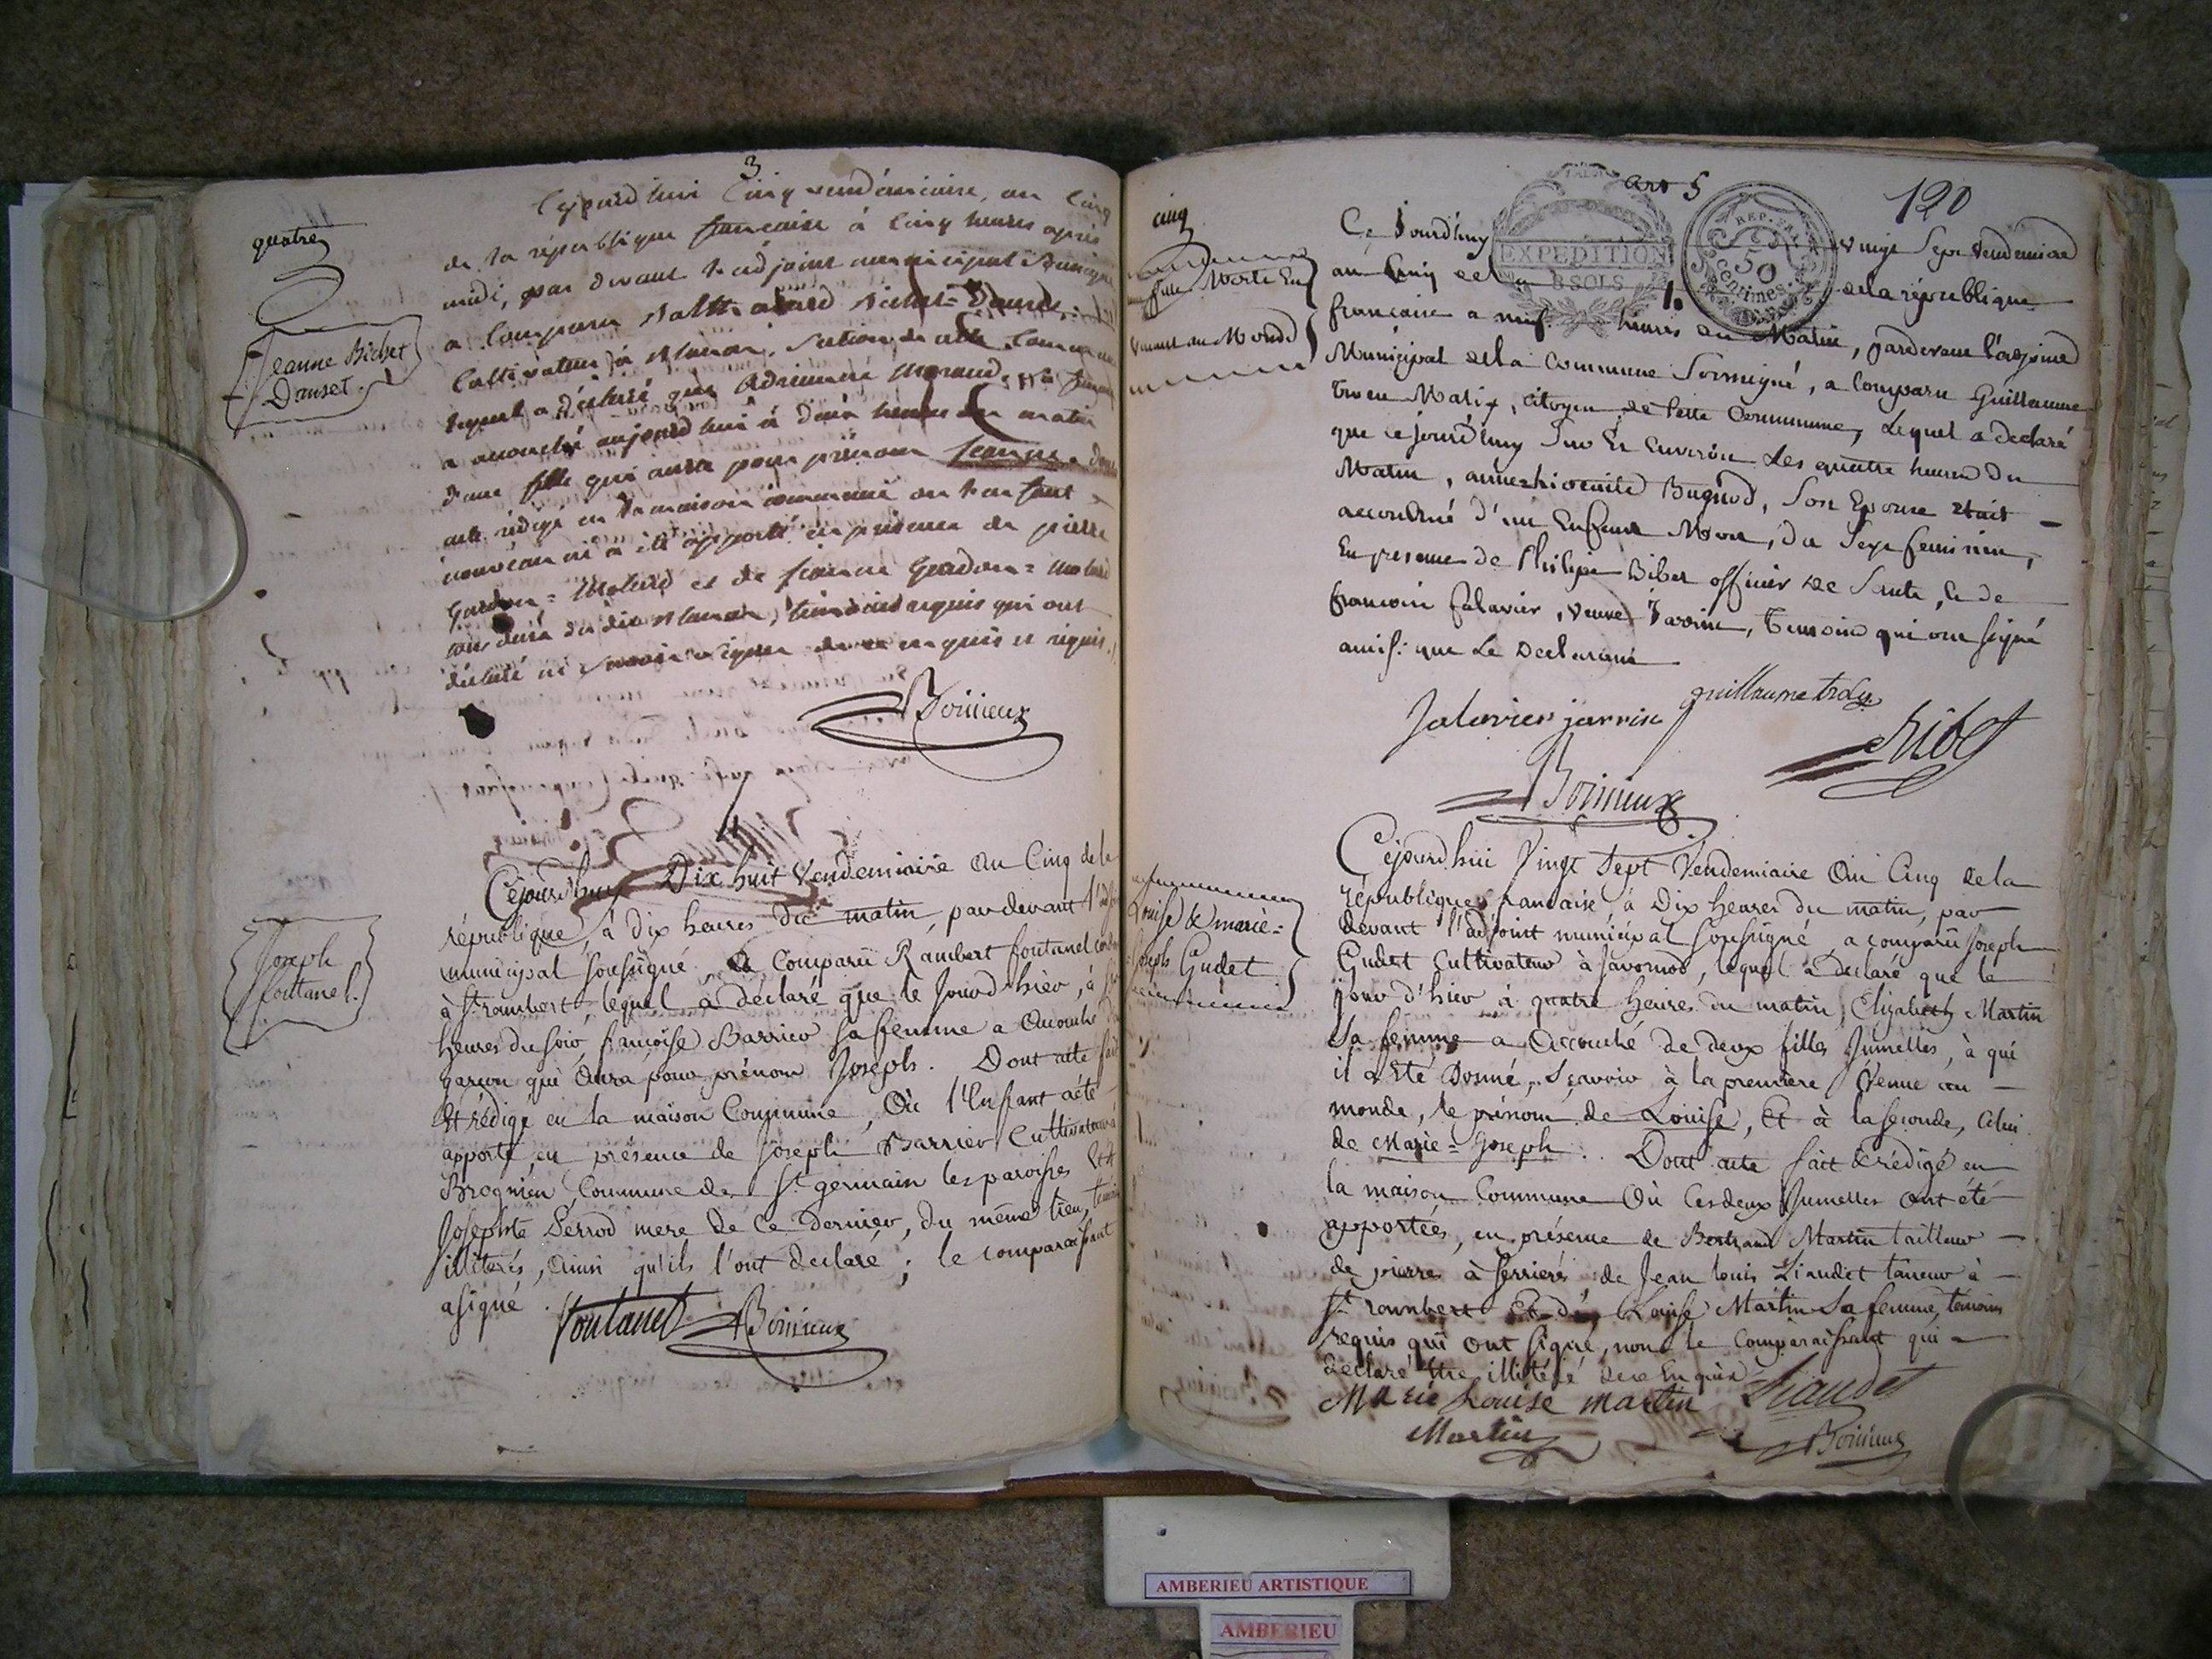 3
quatre
Cejourd'hui Cinq vendémiaire, an Cinq
de la république française à Cinq heures après
midi, par devant l'adjoint municipal
a Comparu
Cultivateur à section de cette Commune
lequel a déclaré que
a accouché aujourd'hui à deux heures du matin
d'une fille qui aura pour prénom jeanne.
acte rédigé en la maison commune ou l'enfant
nouveau né a été apporté en présence de pierre
et de
témoins requis qui ont
déclaré ne savoir signer de ce enquis et requis.
Jeanne Bichet
Danset.
Boinieux
4
Cejourd'huy Dix huit Vendemiaire an Cinq de la
république, à dix heures du matin, pardevant l'adjoint
municipal soussigné a Comparü Rambert fontanel
à St rambert, lequel a déclaré que le Jourd'hier, à
heures du soir françoise Barrier sa femme a accouché
garçon qui aura pour prénom Joseph. Dont acte fait
et rédigé en la maison Commune, Où l'Enfant a été
apporté, en présence de Joseph Barrier Cultivateur à
Brognien Commune de St germain les paroisses Et de
Josephte Perrod mere de ce dernier, du même lieu, temoins
illiterés, ainsi qu'ils l'ont declaré; le comparaissant
a signé.
Joseph
fontanel.
fontanel Boinieux
art 5
120
cinq
Ce Jourd'huy vingt Sept Vendemiaire
an Cinq de la république
EXPEDITION
8 SOLS
REP. FRA
50
Centimes.
francaise a neuf heures du Matin, pardevant l'adjoint
Municipal de la Commune Soussigné, a Comparu Guillaume
citoyen de Cette Commune, Lequel a declaré
que cejourd'huy Sur Les Environ Les quatre heures du
Matin, Bugnod, Son Epouse Etait
accouchée d'un Enfant Mort, du Sexe feminin,
En presence de Philipe Ribet officier de Santé, & de
francoise falavier, veuve Jarrin, temoins qui ont signé
ainsi que Le Declarant
fille Morte En
Venant au Monde
falavier jarrin
Ribet
Boinieux
Cejourd'hui Vingt Sept Vendemiaire An Cinq de la
république francaise, à Dix heures du matin, par
devant l'adjoint municipal soussigné, a comparü Joseph
Gudet Cultivateur à Javornod, lequel a declaré que le
jour d'hier à quatre heures du matin, Elizabeth Martin
Sa femme a accouché de deux filles Jumelles, à qui
il a Eté Donné, Sçavoir à la premiere Venue au
monde, le prénom de Louise, Et à la seconde, Celui
de Marie=Joseph. Dont acte fait & rédigé en
la maison Commune Où Ces deux Jumelles ont été
apportées, en présence de Bertrand Martin tailleur
de pierres à serrieres de Jean louis Liaudet taneur à
St rambert Et de Louise Martin Sa femme, temoins
requis qui ont signé, non le Comparaissant qui a
declaré Etre illitéré de ce Enquis
Louise & marie=
Joseph Gudet
Marie Louise martin Liaudet
Martin
Boinieux
AMBERIEU ARTISTIQUE
AMBERIEU